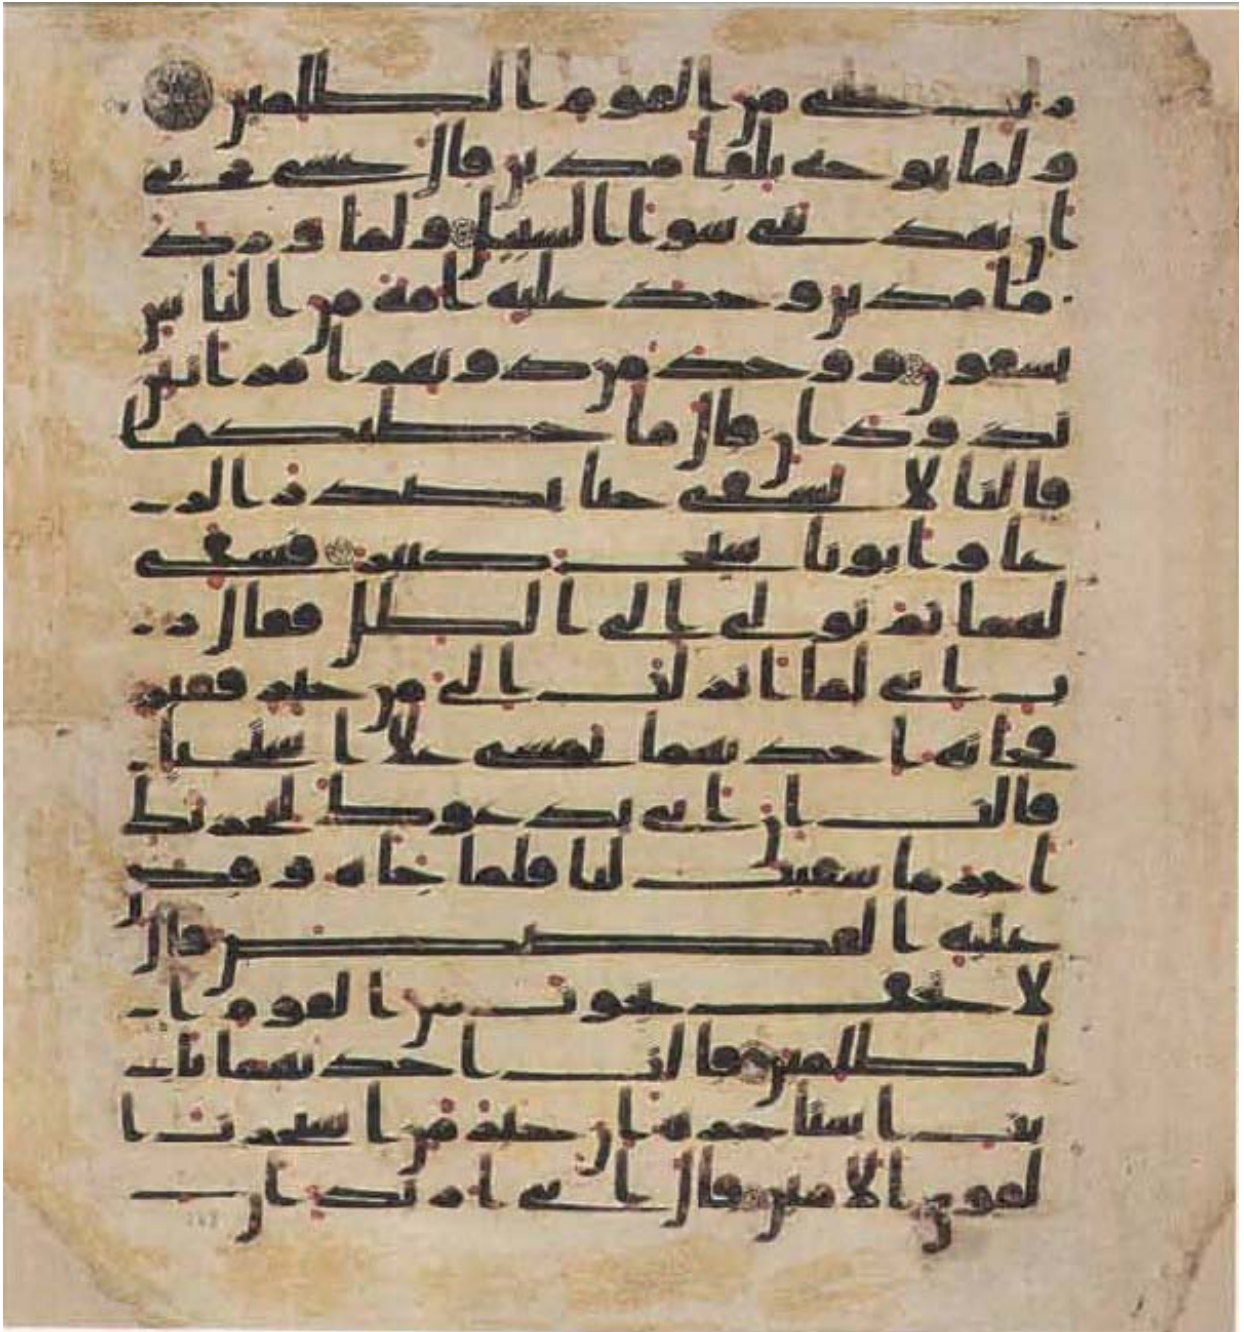 ب نجني من القوم الظلمين
ولما توجه تلقا مدين قال عسى ربي
ان يهديني سوا السبيل ولما ورد
ما مدين وجد عليه امة من الناس
يسقون ووجد من دونهم امراتين
تذودان قال ما خطبكما
قالتا لا نسقي حتى يصدر الر
عا وابونا شيخ كبير فسقى
لهما ثم تولى الى الظل فقال ر
ب اني لما انزلت الي من خير فقير
فجاته احديهما تمشي على استحيا
قالت ان ابي يدعوك ليجزيك
اجر ما سقيت لنا فلما جاه وقص
عليه القصص قال
لا تخف نجوت من القوم ا
لظلمين قالت احديهما يا
بت استجره ان خير من استجرت ا
لقوي الامين قال اني اريد ان